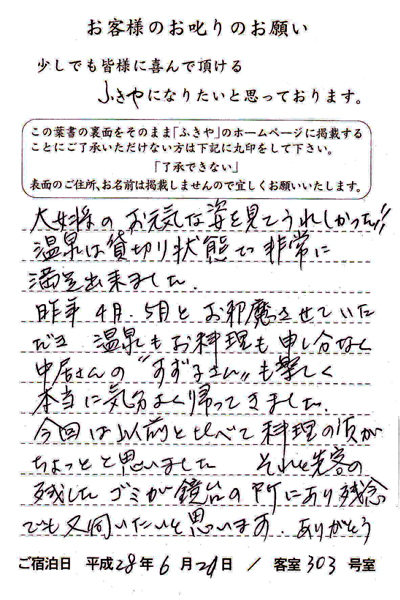 お客様のお叱りのお願い
少しでも皆様に喜んで頂ける
ふきやになりたいと思っております。
この葉書の裏面をそのまま「ふきや」のホームページに掲載する
ことにご了承いただけない方は下記に丸印をして下さい。
「了承できない」
表面のご住所、お名前は掲載しませんので宜しくお願いいたします。
大女将のお元気な姿を見てうれしかったです!!
温泉は貸切り状態で非常に
満足出来ました.
昨年4月.5月とお邪魔させていた
だき 温泉もお料理も申し分なく
中居さんの"すず子さん"も楽しく
本当に気分よく帰ってきました.
今回は以前と比べて料理の質が
ちょっとと思いました それと先客の
残したゴミが鏡台の所にあり残念
でも又伺いたいと思います. ありがとう
ご宿泊日 平成28年6月24日 / 客室303号室